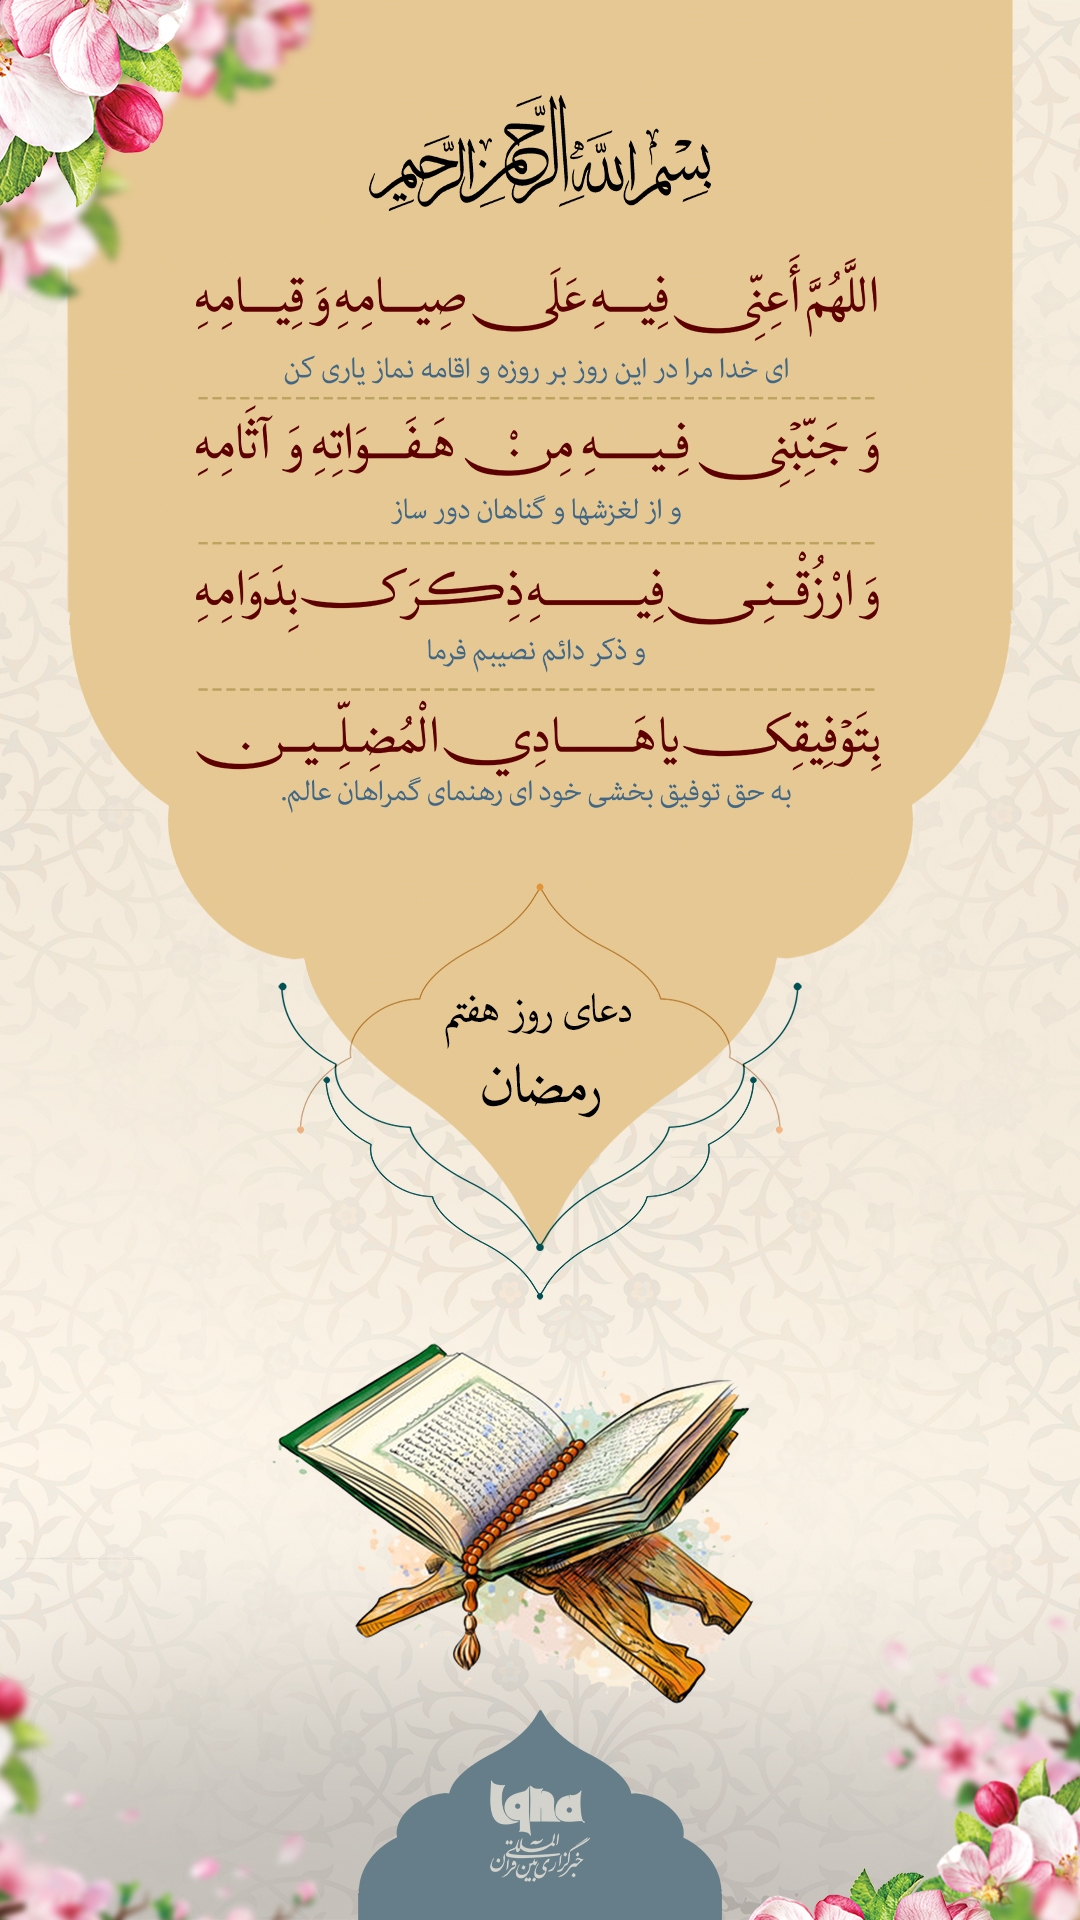 بِسْمِ اللَّهِ الرَّحْمَنِ الرَّحِيمِ
اللَّهُمَّ أَعِنِّي فِيهِ عَلَى صِيامِهِ وَ قِيامِهِ
ای خدا مرا در این روز بر روزه و اقامه نماز یاری کن
وَ جَنِّبْنِي فِيهِ مِنْ هَفَوَاتِهِ وَ آثَامِهِ
و از لغزشها و گناهان دور ساز
وَ ارْزُقْنِي فِيهِ ذِكرَک بِدَوَامِهِ
و ذکر دائم نصیبم فرما
بِتَوْفِيقِک يا هَادِي الْمُضِلِّين
به حق توفیق بخشی خود ای رهنمای گمراهان عالم.
دعای روز هفتم
رمضان
iqna
خبرگزاری بین‌المللی قرآن